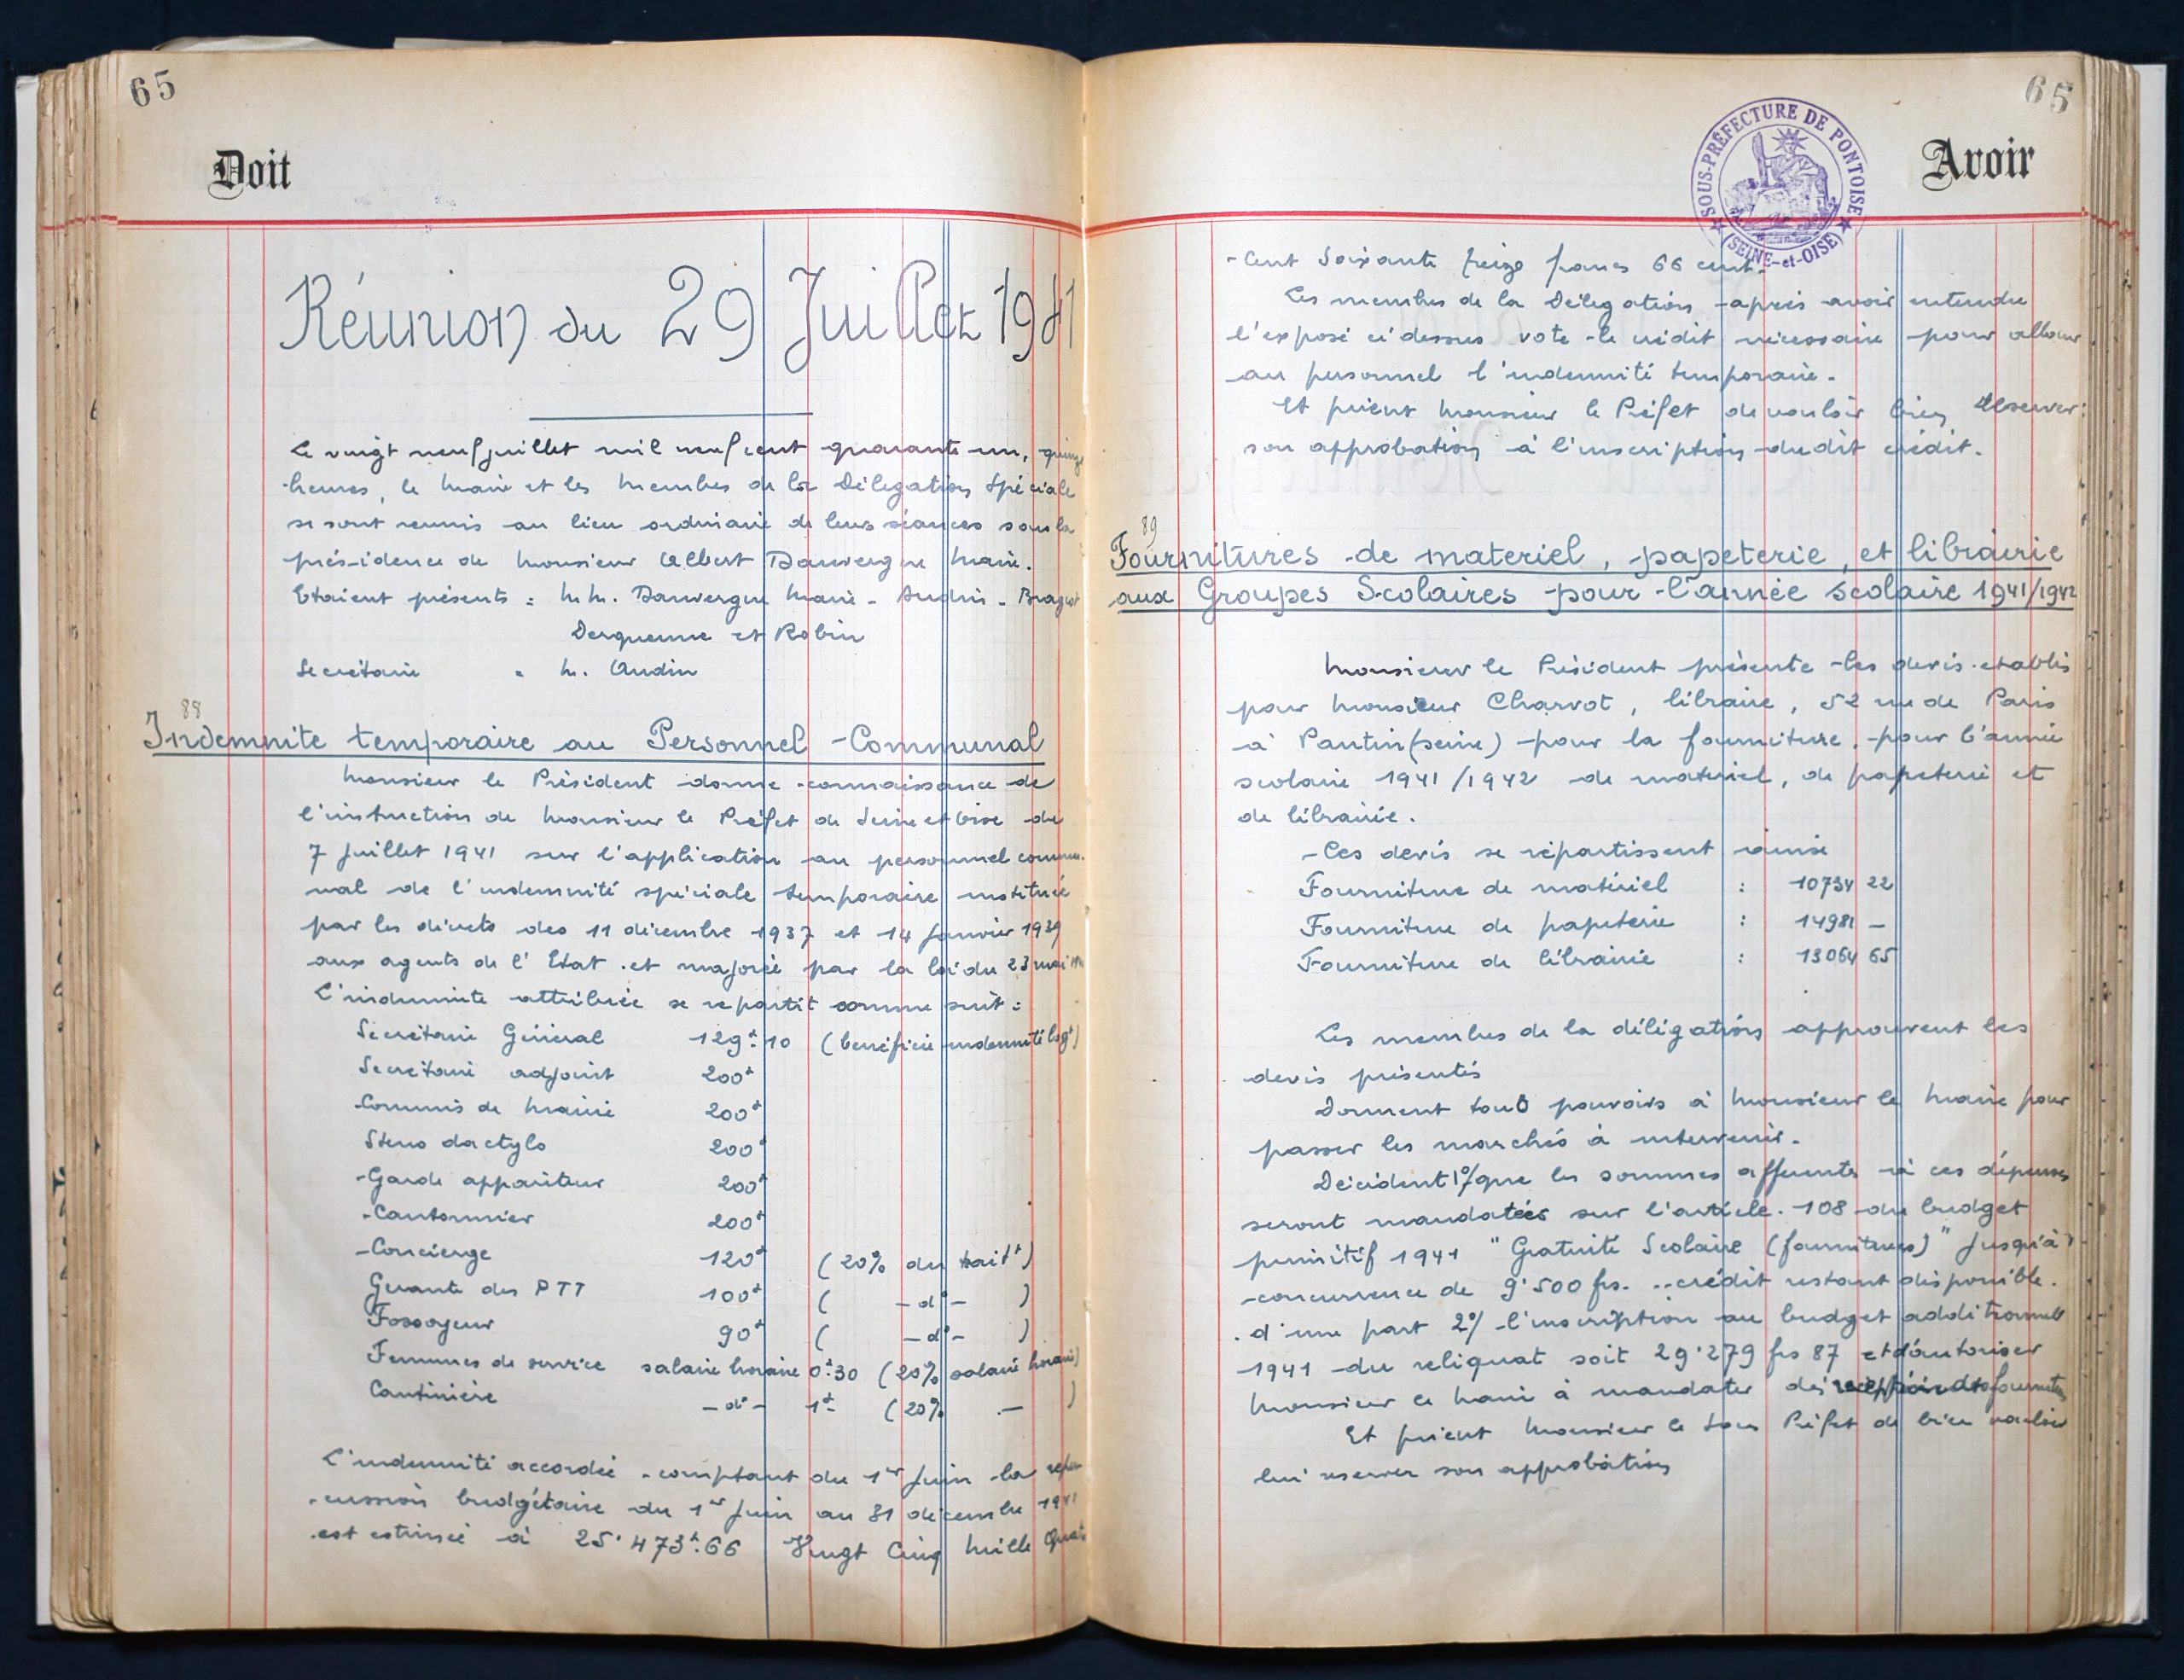 65
Doit
Réunion du 29 Juillet 1941
Le vingt neuf juillet mil neuf cent quarante un, quinze
heures, le Maire et les Membres de la Délégation Spéciale
se sont reunis au lieu ordinaire de leurs séances sous la
présidence de Monsieur Albert Dauvergne Maire.
Etaient présents : M.M. Dauvergne Maire - Audin - Bragot
Derquenne et Robin
Secrétaire " M. Audin
88
Indemnite temporaire au Personnel Communal
Monsieur le Président donne connaissance de
l'instruction de Monsieur le Préfet de Seine et Oise du
7 Juillet 1941 sur l'application au personnel commu-
nal de l'indemnité spéciale temporaire instituée
par les décrets des 11 décembre 1937 et 14 Janvier 1939
aux agents de l'Etat et majorée par la loi du 23 mai
L'indemnite attribuée se repartit comme suit :
Secrétaire Général 129f.10 (bénéficie indemnité logt)
Secrétaire adjoint 200f
Commis de Mairie 200f
Steno dactylo 200f
Garde appariteur 200f
Cantonnier 200f
Concierge 120f (20% du trait t)
Gerante des PTT 100f ( -d°- )
Fossoyeur 90f ( -d°- )
Femmes de service salaire horaire 0f.30 (20% salaire horaire)
Cantinière -d°- 1f- (20% - )
L'indemnité accordée comptant du 1er Juin la réper
cussion budgétaire du 1er Juin au 31 décembre 1941
est estimée à 25.473f.66 Vingt Cinq Mille Quatre
65
Avoir
SOUS-PRÉFECTURE DE PONTOISE
(SEINE-et-OISE)
-Cent Soixante treize francs 66 cent.
Les membres de la Délégation après avoir entendu
l'exposé ci dessus vote le crédit nécessaire pour allouer
au personnel l'indemnité temporaire.
Et prient Monsieur le Préfet de vouloir bien réserver
son approbation à l'inscription dudit crédit.
89
Fournitures de materiel, papeterie, et librairie
aux Groupes Scolaires pour l'année scolaire 1941/1942
Monsieur le Président présente les devis etablis
par Monsieur Charvot, libraire, 52 rue de Paris
à Pantin (seine) pour la fourniture, pour l'année
scolaire 1941/1942 de matériel, de papeterie et
de librairie.
Ces devis se répartissent ainsi
Fourniture de matériel : 10734 22
Fourniture de papeterie : 14981 -
Fourniture de librairie : 13064 65
Les membres de la délégation approuvent les
devis présentés
Donnent tous pouvoirs à Monsieur le Maire pour
passer les marchés à intervenir.
Décident 1°/ que les sommes afferentes à ces dépenses
seront mandatées sur l'article 108 du budget
primitif 1941 "Gratuité Scolaire (fournitures)" Jusqu'à
concurrence de 9.500 frs. crédit restant disponible.
d'une part 2°/ l'inscription au budget additionnel
1941 du reliquat soit 29.279 frs 87 et d'autoriser
Monsieur le Maire à mandater dès réception des fournitures
Et prient Monsieur le Sous Préfet de bien vouloir
lui réserver son approbation